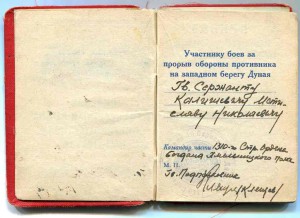 Участнику боев за
прорыв обороны противника
на западном берегу Дуная
Гв. Сержанту
Мсти-
славу Николаевичу
Командир части 1310-й Стр. Ордена
Богдана Хмельницкого полка
М. П.
Гв. Подполковник